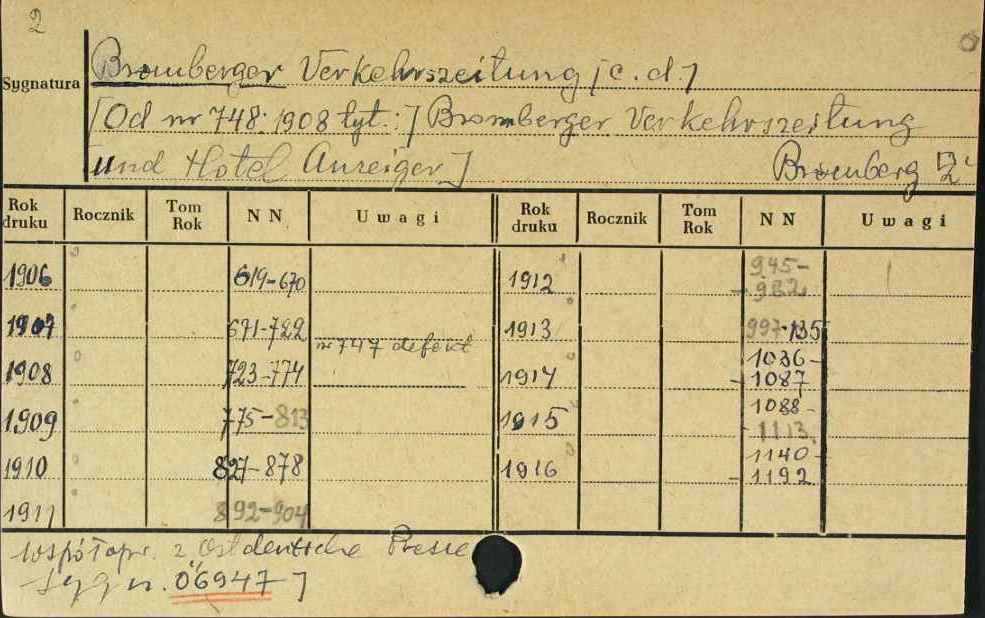 2
Sygnatura
Bromberger Verkehrszeitung [c.d.]
[Od nr 748. 1908 tyt.:] Bromberger Verkehrszeitung
und Hotel Anzeiger]
Bromberg
Rok druku Rocznik Tom Rok NN Uwagi Rok druku Rocznik Tom Rok NN Uwagi
1906 619-670 1912 945-982
1907 671-722 1913 997-
1908 723-774 nr 747 defekt 1914 1036-1087
1909 775-813 1915 1088-1113
1910 827-878 1916 1140-1192
1911 892-904
współopr. z Ostdeutsche Presse
sygn. 06947]